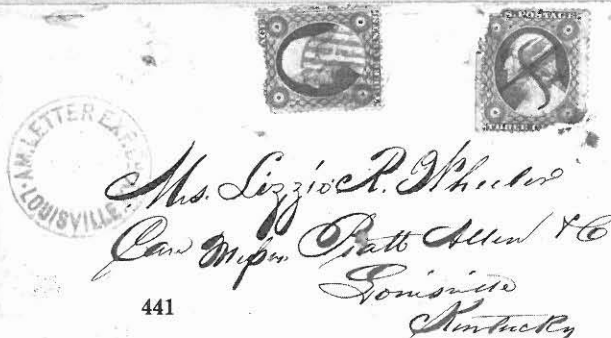 S. POSTAGE
AM. LETTER EXPRESS
LOUISVILLE
Mrs. Lizzie R. Wheeler
Care Messrs Pratt Allen & Co
Louisville
Kentucky
441